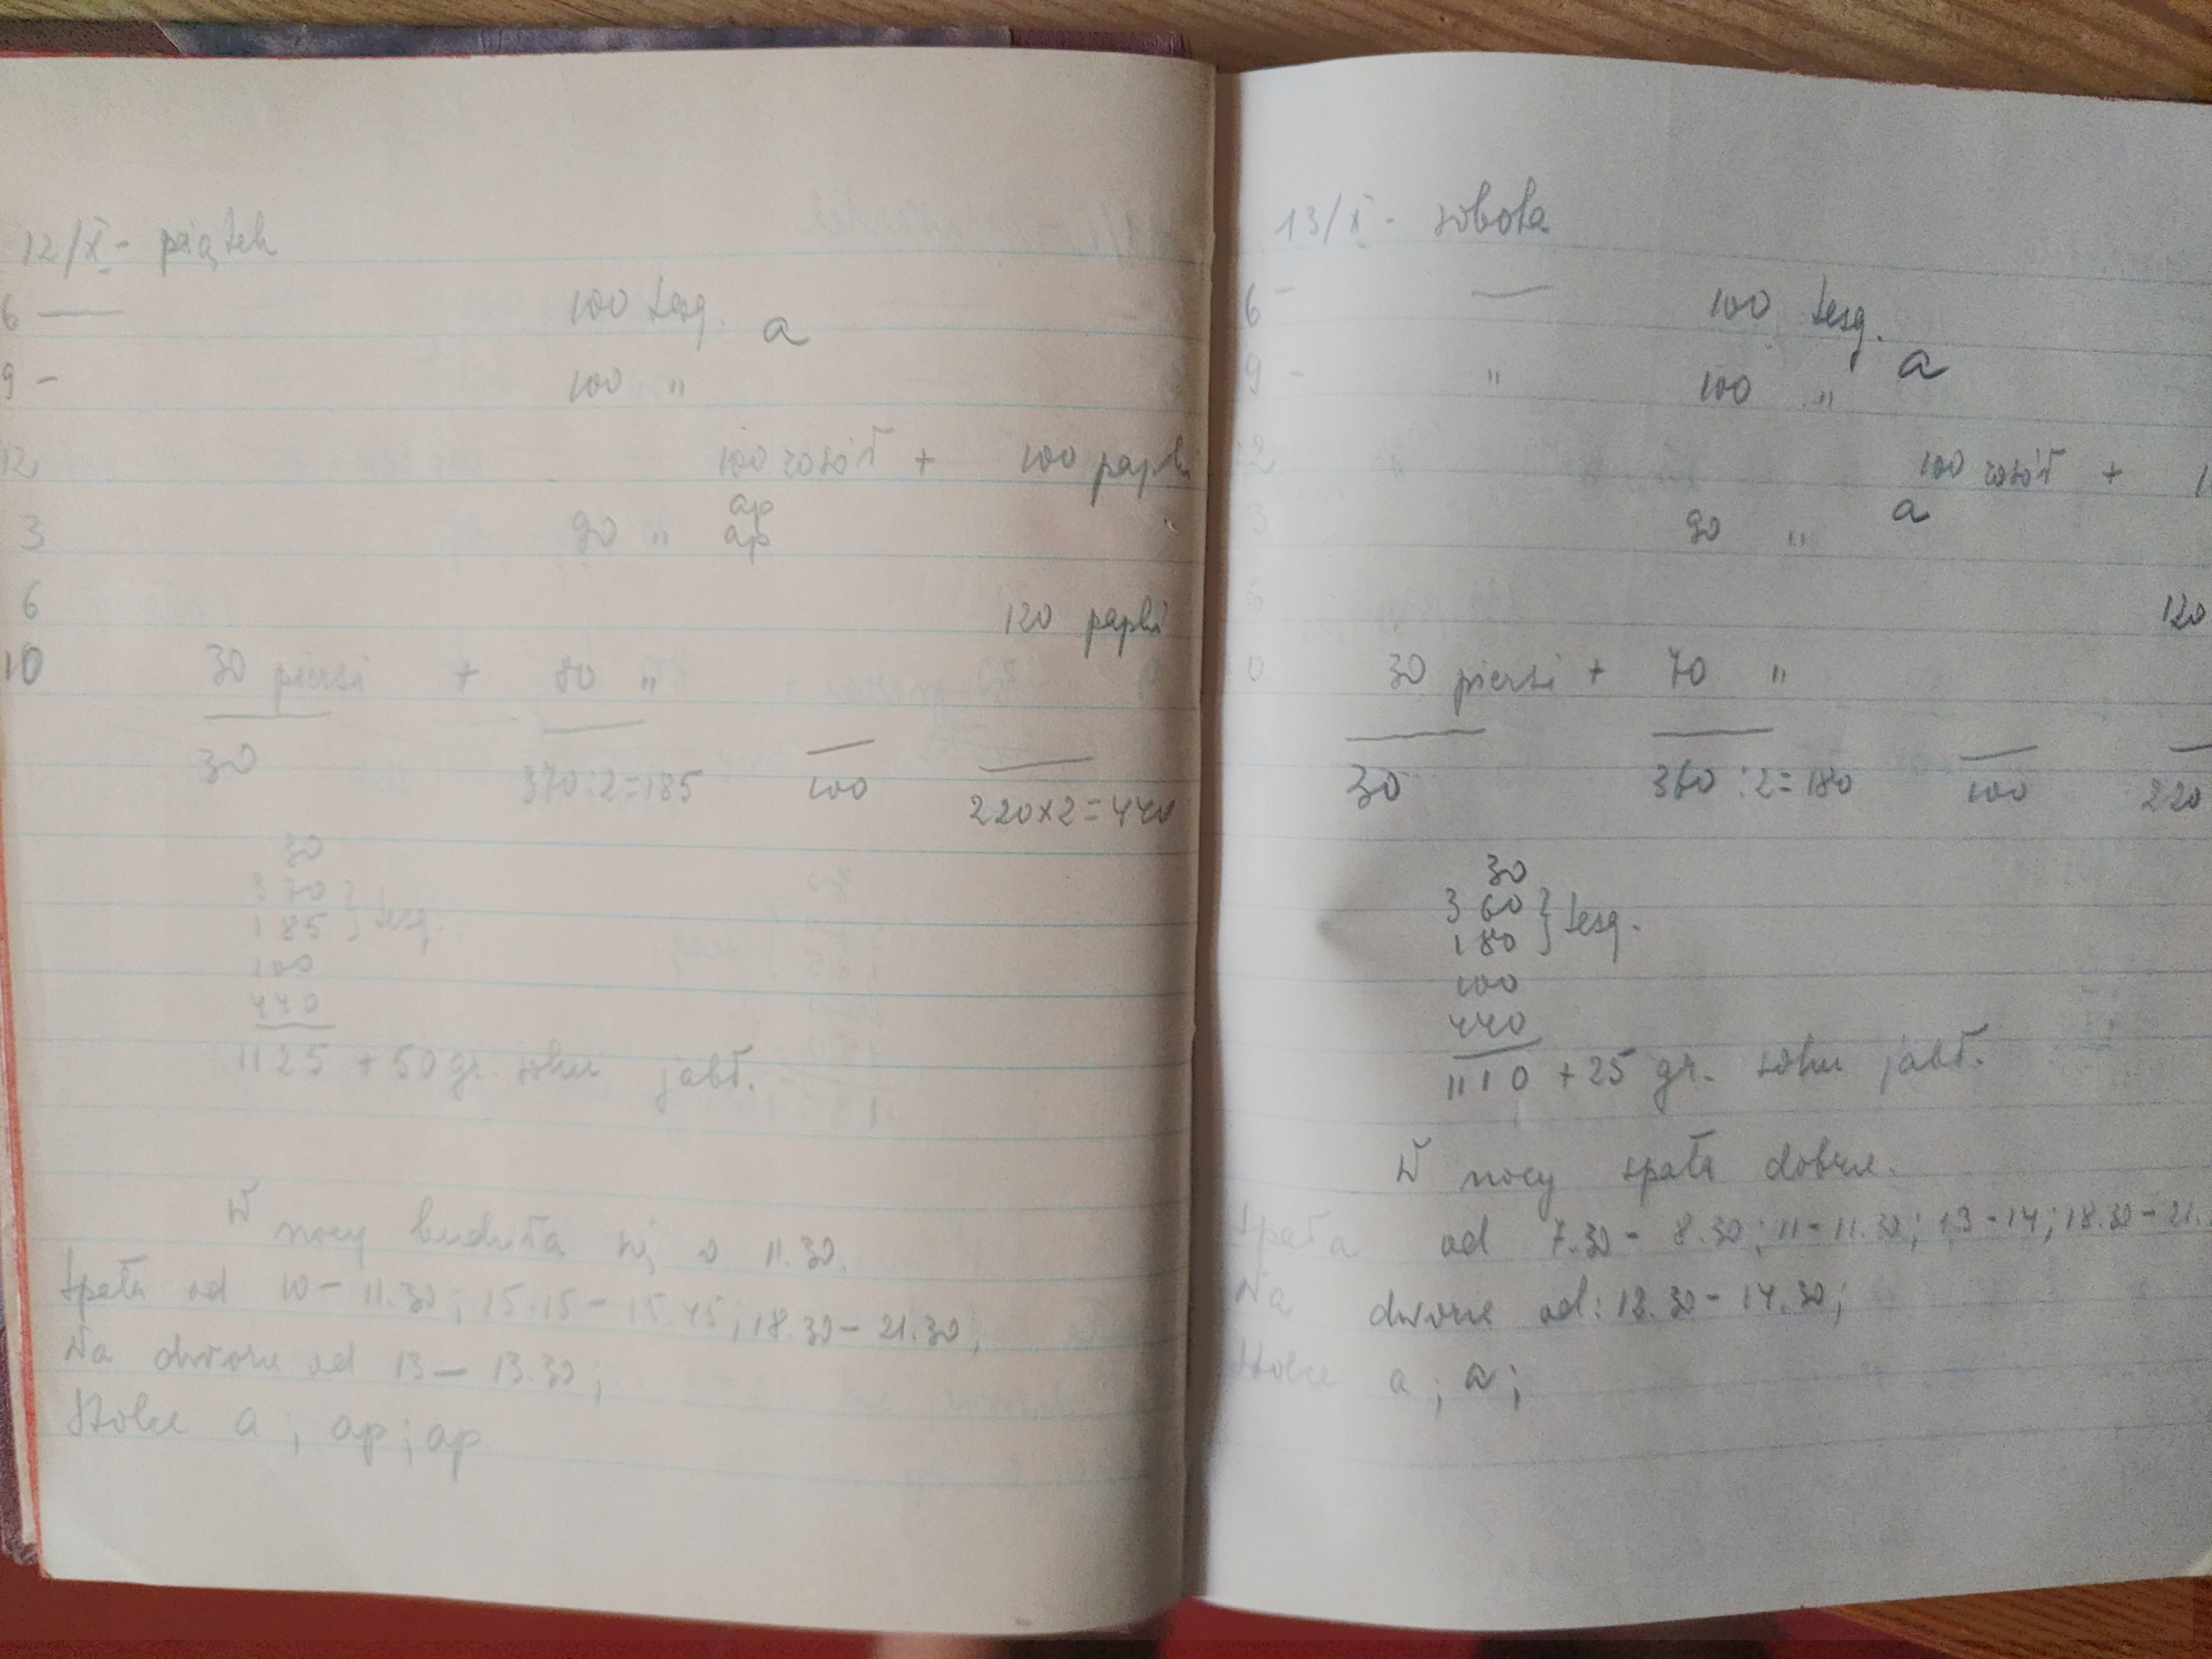 12/X - piątek
6 — 100 tesg. a
9 - 100 "
12 100 rosół + 100 papki
ap
3 90 " ap
6 120 papki
10 30 piersi + 80 "
30 370:2=185 100 220x2=440
30
370
185 } tesg.
100
440
1125 + 50 gr. soku jabł.
W nocy budziła się o 11.30.
Spała od 10 - 11.30; 15.15 - 15.45; 18.30 - 21.30;
Na dworze od 13 — 13.30;
Stolce a; ap; ap
13/X - sobota
6 - — 100 tesg. a
9 - " 100 "
12 100 rosół +
3 90 " a
6 120
0 30 piersi + 70 "
30 360:2=180 100 220
30
360
180 } tesg.
100
440
1110 + 25 gr. soku jabł.
W nocy spała dobrze.
Spała od 7.30 - 8.30; 11 - 11.30; 13 - 14; 18.30 - 21.
Na dworze od: 12.30 - 14.30;
Stolce a; a;